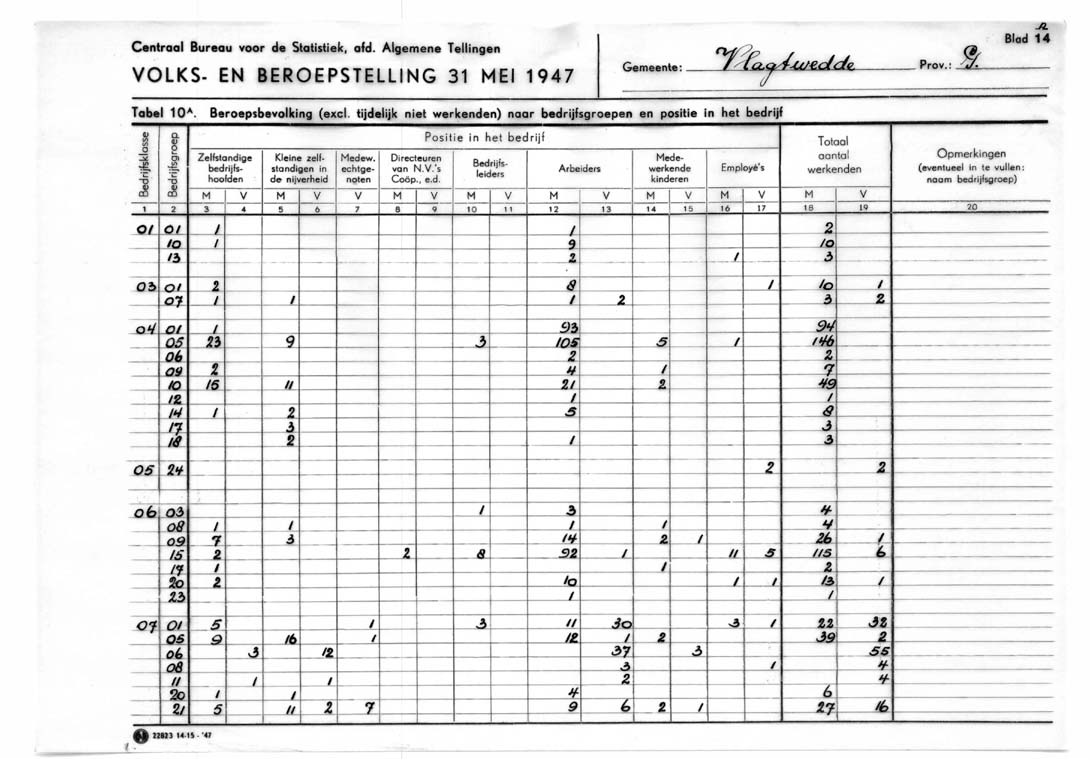 12
Blad 14
Centraal Bureau voor de Statistiek, afd. Algemene Tellingen
VOLKS- EN BEROEPSTELLING 31 MEI 1947
Gemeente: Vlagtwedde Prov.: G.
Tabel 10A. Beroepsbevolking (excl. tijdelijk niet werkenden) naar bedrijfsgroepen en positie in het bedrijf
Bedrijfsklasse Bedrijfsgroep Positie in het bedrijf Totaal aantal werkenden Opmerkingen (eventueel in te vullen: naam bedrijfsgroep)
Zelfstandige bedrijfs-hoofden Kleine zelf-standigen in de nijverheid Medew. echtge-noten Directeuren van N.V.'s Coöp., e.d. Bedrijfs-leiders Arbeiders Mede-werkende kinderen Employé's
M V M V V M V M V M V M V M V M V
1 2 3 4 5 6 7 8 9 10 11 12 13 14 15 16 17 18 19 20
01 01 1 1 2
10 1 9 10
13 2 1 3
03 01 2 8 1 10 1
07 1 1 1 2 3 2
04 01 1 93 94
05 23 9 3 105 5 1 146
06 2 2
09 2 4 1 7
10 15 11 21 2 49
12 1 1
14 1 2 5 8
17 3 3
18 2 1 3
05 24 2 2
06 03 1 3 4
08 1 1 1 1 4
09 7 3 14 2 1 26 1
15 2 2 8 92 1 11 5 115 6
17 1 1 2
20 2 10 1 1 13 1
23 1 1
07 01 5 1 3 11 30 3 1 22 32
05 9 16 1 12 1 2 39 2
06 3 12 37 3 55
08 3 1 4
11 1 1 2 4
20 1 1 4 6
21 5 11 2 7 9 6 2 1 27 16
22823 14-15 - '47